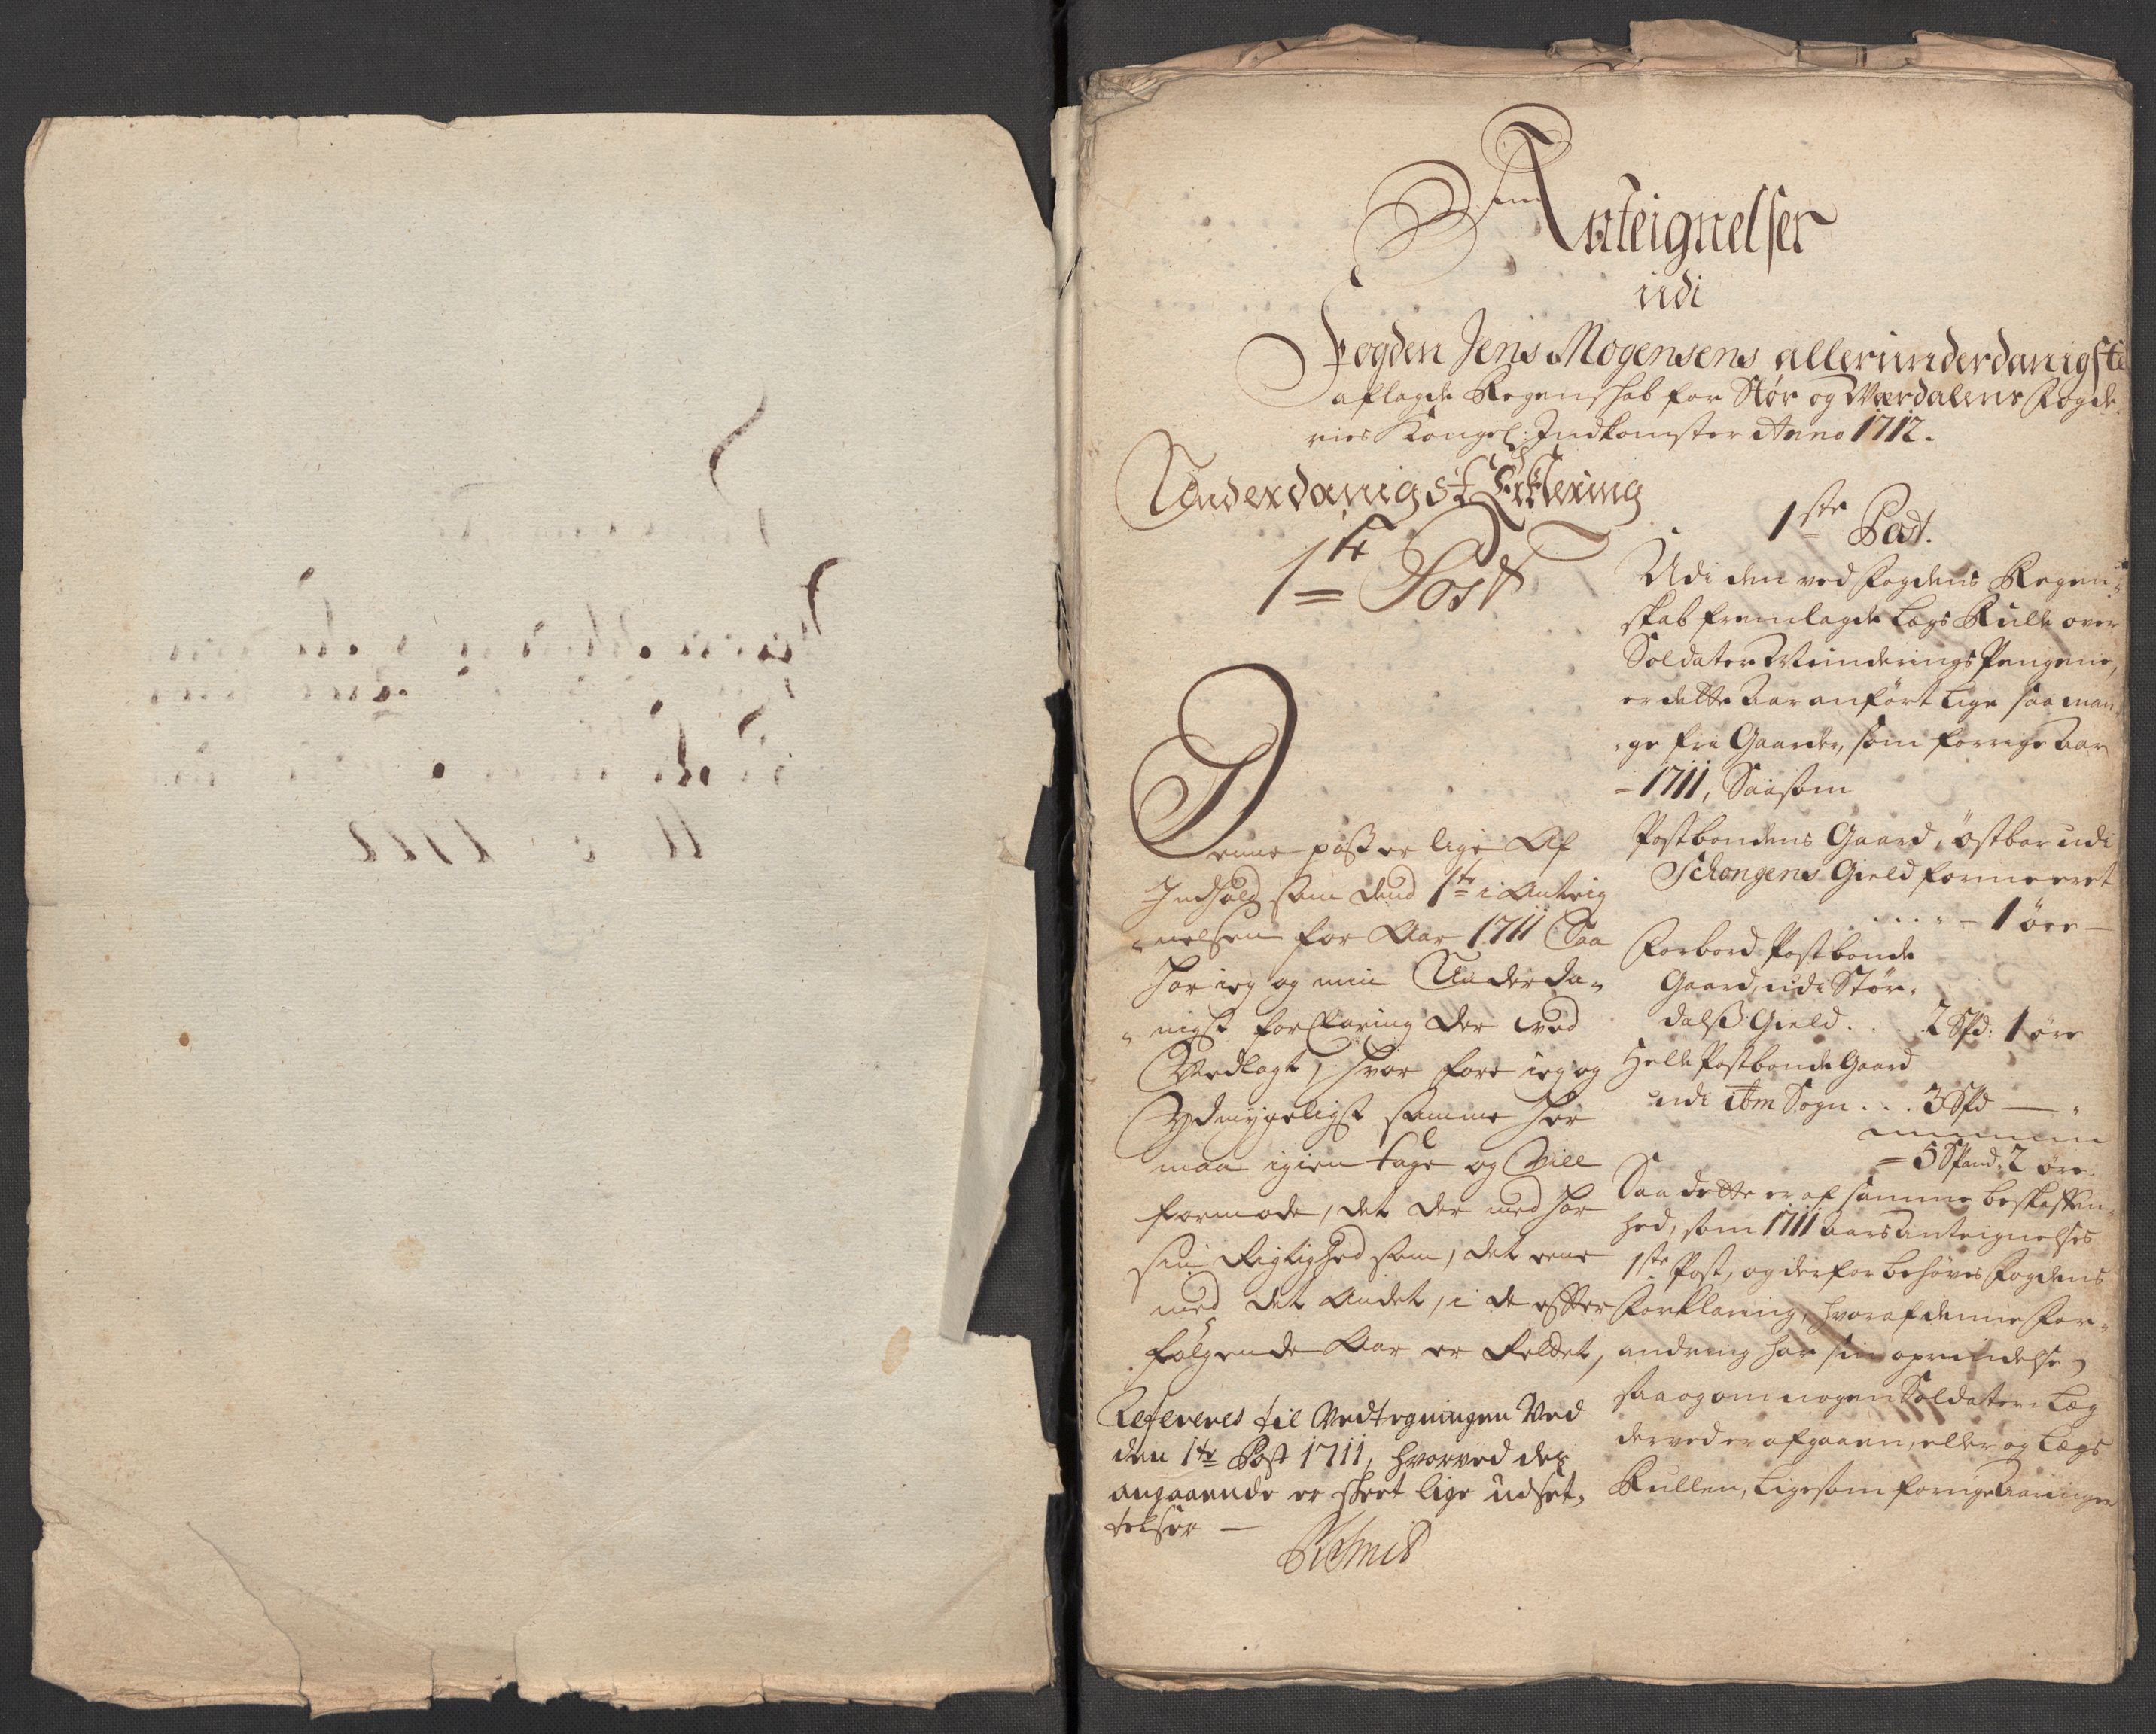 Anteignelser
udi
Fogden Jens Mogensens allerunderdanigste
aflagde Regenskab for Stør og Værdalens Fogde
ries Kongel: Indkomster Anno 1712.
Underdanigst Erklering
1te Post
Denne post er lige Af
Indhold som dend 1te i Anteig
nelsen for Aar 1711 Saa
har ieg og min Underda-
nigst forklaring der ved
Vedlagt, hvor fore ieg og
Ydmygeligst samme her
maa igien tage og Vill
formode, det der med har
sin Rigtighed som, det eene
med det Andet, i de efter
følgende Aar er Feldet,
Refereres til Vedtegningen Ved
den 1te Post 1711, hvorved des
angaaende er skeet lige udset-
telser —
1ste Post.
Udi den ved Fogdens Regen-
skab fremlagde Lægs Rulle over
Soldater Munderings Pengene,
er dette Aar anført lige saa man-
ge fri Gaarder, som forrige Aar
1711, Saasom
Postbondens Gaard, Østbor udi
Schongens Gield formeeret
. . . . - 1 øre -
Forbord Postbonde
Gaard, udi Stør-
dalß Gield . . . 2 Spd: 1 øre
Helle Postbonde Gaard
udi ibm Sogn . . . 3 Spd — "
= 5 Spand 2 øre.
Saa dette er af samme beskaffen-
hed, som 1711 aars Anteignelses
1ste Post, og derfor behøves Fogdens
Forklaring, hvoraf denne For-
andring har sin oprindelse,
saa og om nogen Soldater Læg
derved er afgaaen, eller og Lægs
Rullen, ligesom forrige Aaringer